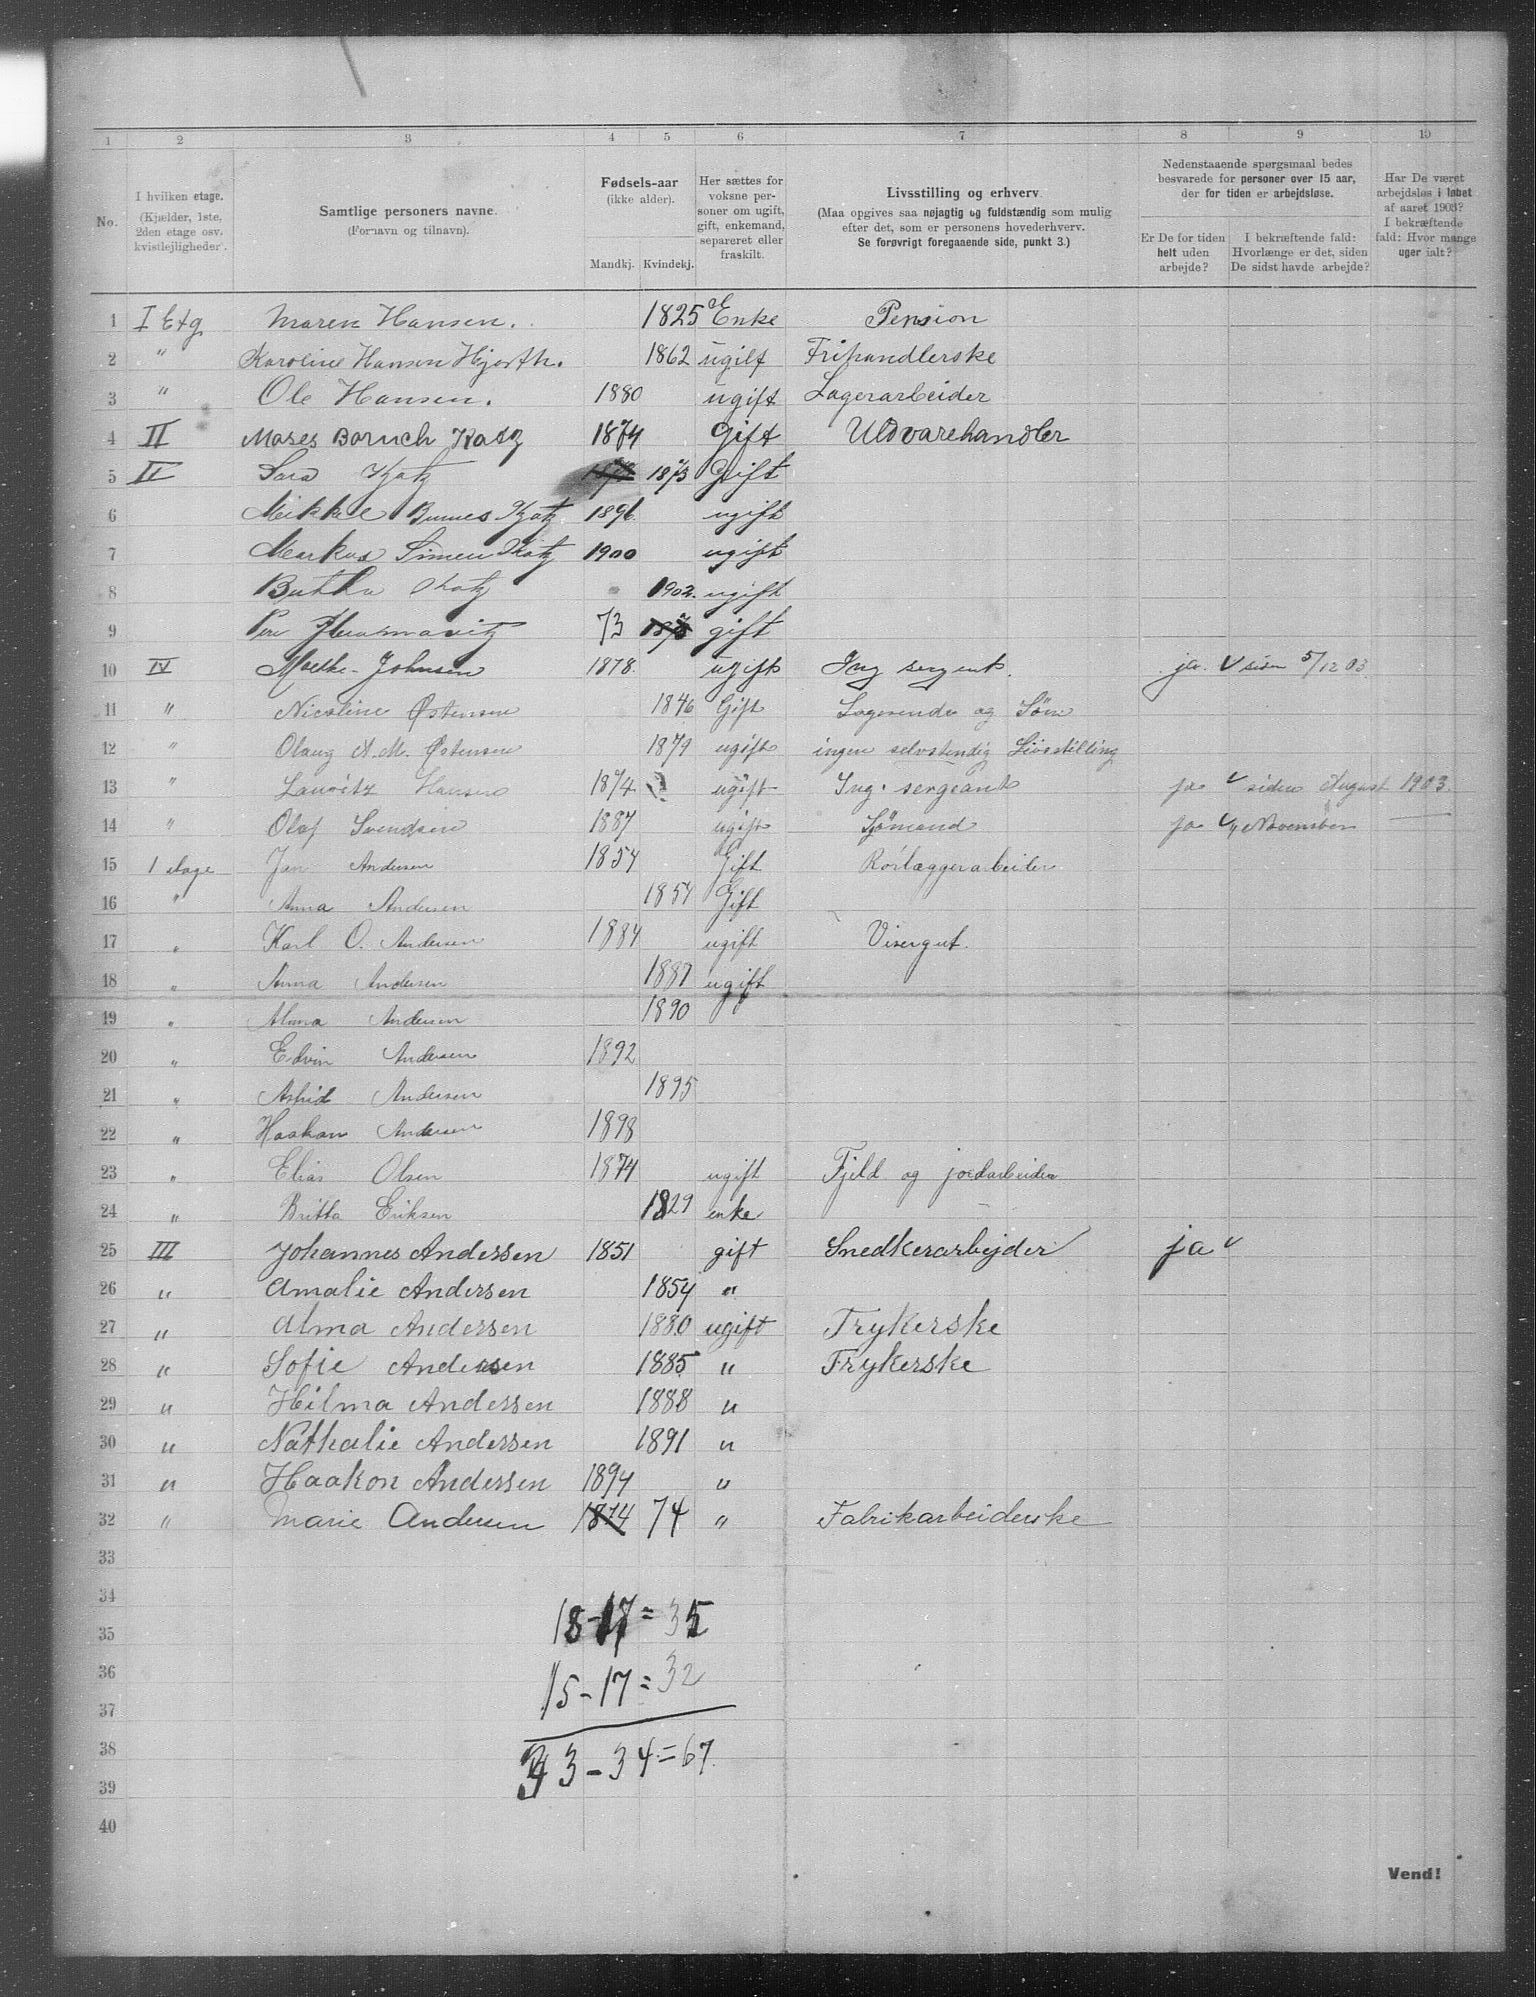 1 2 3 4 5 6 7 8 9 10
No.
I hvilken etage.
(Kjælder, 1ste, 2den etage osv. kvistlejligheder.
Samtlige personers navne.
(Fornavn og tilnavn).
Fødsels-aar
(ikke alder).
Mandkj. Kvindekj.
Her sættes for voksne personer om ugift, gift, enkemand, separeret eller fraskilt.
Livsstilling og erhverv.
(Maa opgives saa nøjagtig og fuldstændig som mulig efter det, som er personens hovederhverv.
Se forøvrigt foregaaende side, punkt 3.)
Nedenstaaende spørgsmaal bedes besvarede for personer over 15 aar, der for tiden er arbejdsløse.
Er De for tiden helt uden arbejde?
I bekræftende fald: Hvorlænge er det, siden De sidst havde arbejde?
Har De været arbejdsløs i løbet af aaret 1903? I bekræftende fald: Hvor mange uger ialt?
1 I Etg Maren Hansen. 1825 Enke Pension
2 " Karoline Hansen Hjorth. 1862 ugift Frihandlerske
3 " Ole Hansen. 1880 ugift Lagerarbeider
4 II Moses Boruch Katz 1874 Gift Uldvarehandler
5 II Sara Katz 1873 Gift
6 Mikkel Katz 1896 ugift
7 Markus Simen Katz 1900 ugift
8 Katz 1902 ugift
9 73 gift
10 IV Johnsen 1878 ugift Ing sergent. ja. siden 5/12 03
11 " Nicoline Østensen 1846 Gift og Søm
12 " Olaug A. M. Østensen 1879 ugift ingen selvstendig Livsstilling
13 " Lauritz Hansen 1874 ugift Ing. sergeant ja siden August 1903.
14 " Olaf Svendsen 1887 ugift Sjömand ja November
15 1 etage Jan Andersen 1854 Gift Rörlæggerarbeider
16 " Anna Andersen 1857 Gift
17 " Karl O. Andersen 1884 ugift Visergut.
18 " Anna Andersen 1887 ugift
19 " Alma Andersen 1890
20 " Edvin Andersen 1892
21 " Astrid Andersen 1895
22 " Haakon Andersen 1898
23 " Elias Olsen 1874 ugift Fjeld og jordarbeider
24 " Britta Eriksen 1829 enke
25 III Johannes Andersen 1851 gift Snedkerarbejder ja
26 " Amalie Andersen 1854 "
27 " Alma Andersen 1880 ugift Trykerske
28 " Sofie Andersen 1885 " Trykerske
29 " Hilma Andersen 1888 "
30 " Nathalie Andersen 1891 "
31 " Haakon Andersen 1894 "
32 " Marie Andersen 1874 74 " Fabrikarbeiderske
33
34
35
36
37
38
39
40
18-17=35
15-17=32
33-34=67.
Vend!